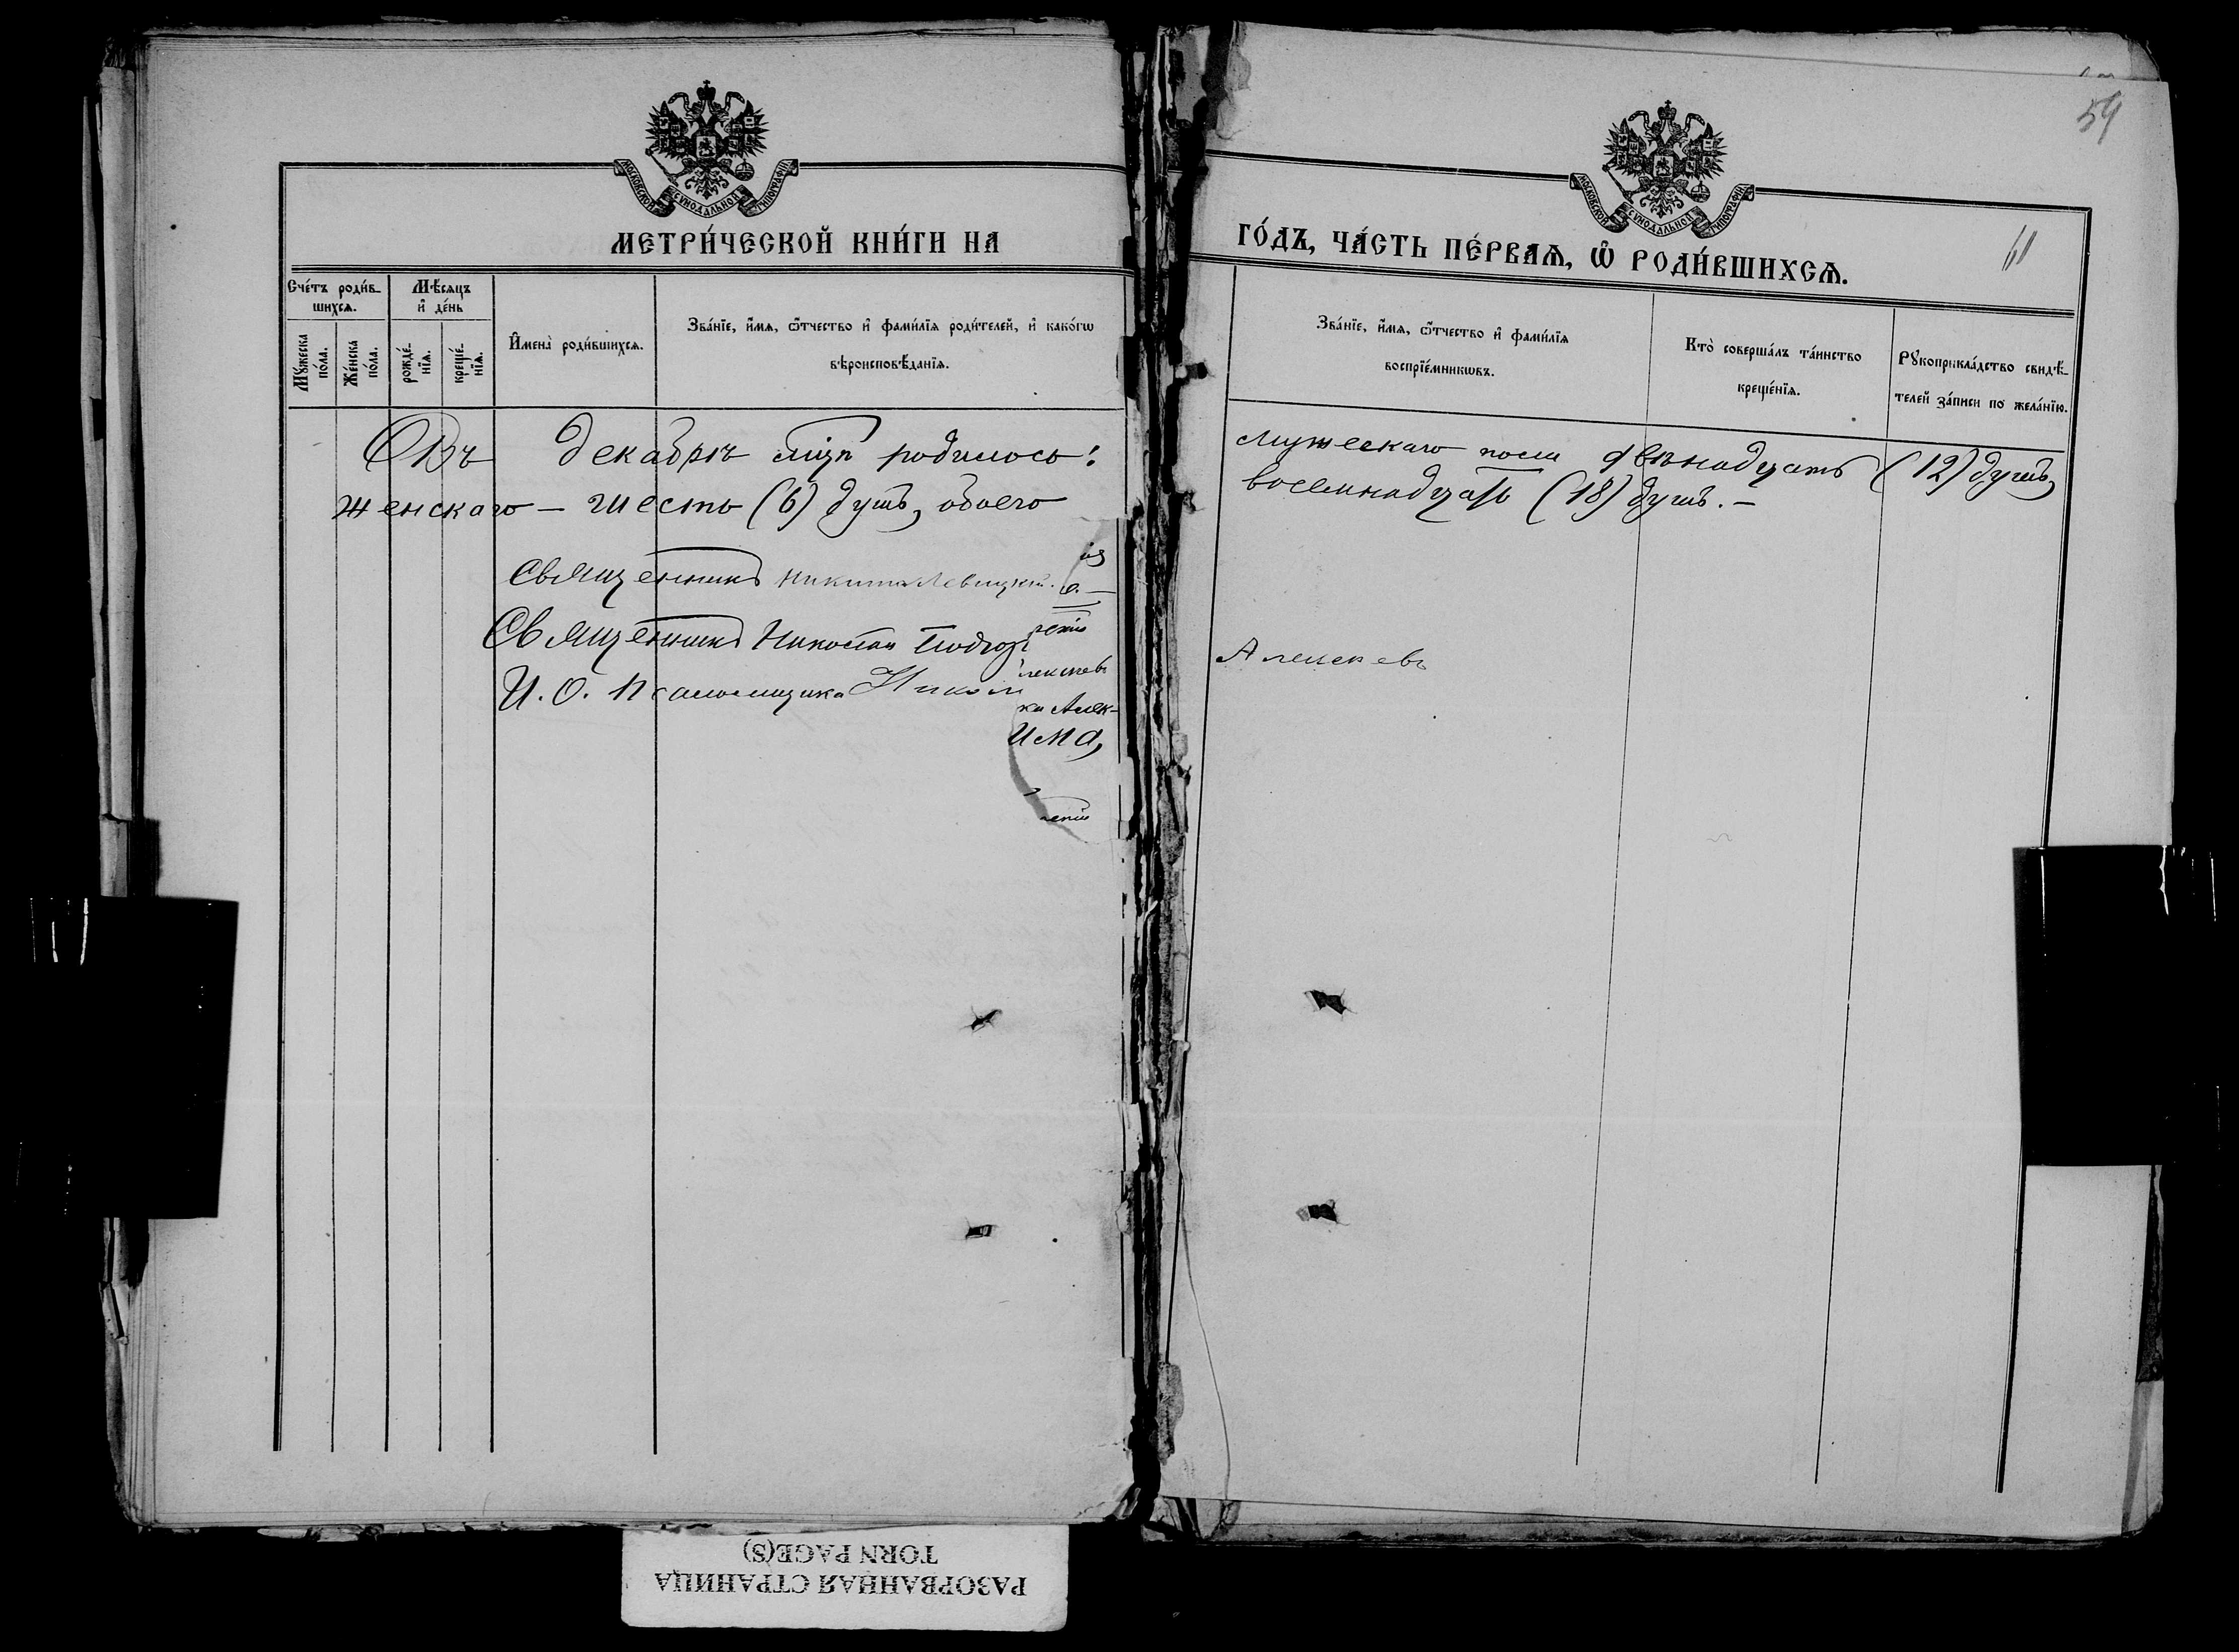 МОСКОВСКОЙ СѴНОДАЛЬНОЙ ТИПОГРАФІИ
МЕТРИ́ЧЕСКОЙ КНИ́ГИ НА
Сче́тъ роди́в-
шихся.
Мѣ́сяцъ
и҆ де́нь
Мꙋ́жеска
по́ла.
Же́нска
по́ла.
рожде́-
нїя.
креще́-
нїя.
И҆мена̀ роди́вшихся.
Зва́нїе, и҆́мя, ѻ҆́тчество и҆ фами́лїя роди́телей, и҆ како́гѡ
вѣроисповѣ́данїя.
Въ Декабрѣ мцѣ родилось:
женскаго — шесть (6) душъ, обоего
Священникъ Никита Левицкій.
Священникъ Николай
И. О. Псаломщика Никол
има,
59
МОСКОВСКОЙ СѴНОДАЛЬНОЙ ТИПОГРАФІИ
61
ГО́ДЪ, ЧА́СТЬ ПЕ́РВАЯ, Ѡ҆ РОДИ́ВШИХСЯ.
Зва́нїе, и҆́мя, ѻ҆́тчество и҆ фами́лїя
воспрїе́мникѡвъ.
Кто̀ соверша́лъ та́инство
креще́нїя.
Рꙋкоприкла́дство свидѣ́-
телей за́писи по жела́нїю.
мужескаго пола двѣнадцать (12) душъ,
восемнадцать (18) душъ. —
Алексѣевъ
РАЗОРВАННАЯ СТРАНИЦА
TORN PAGE(S)